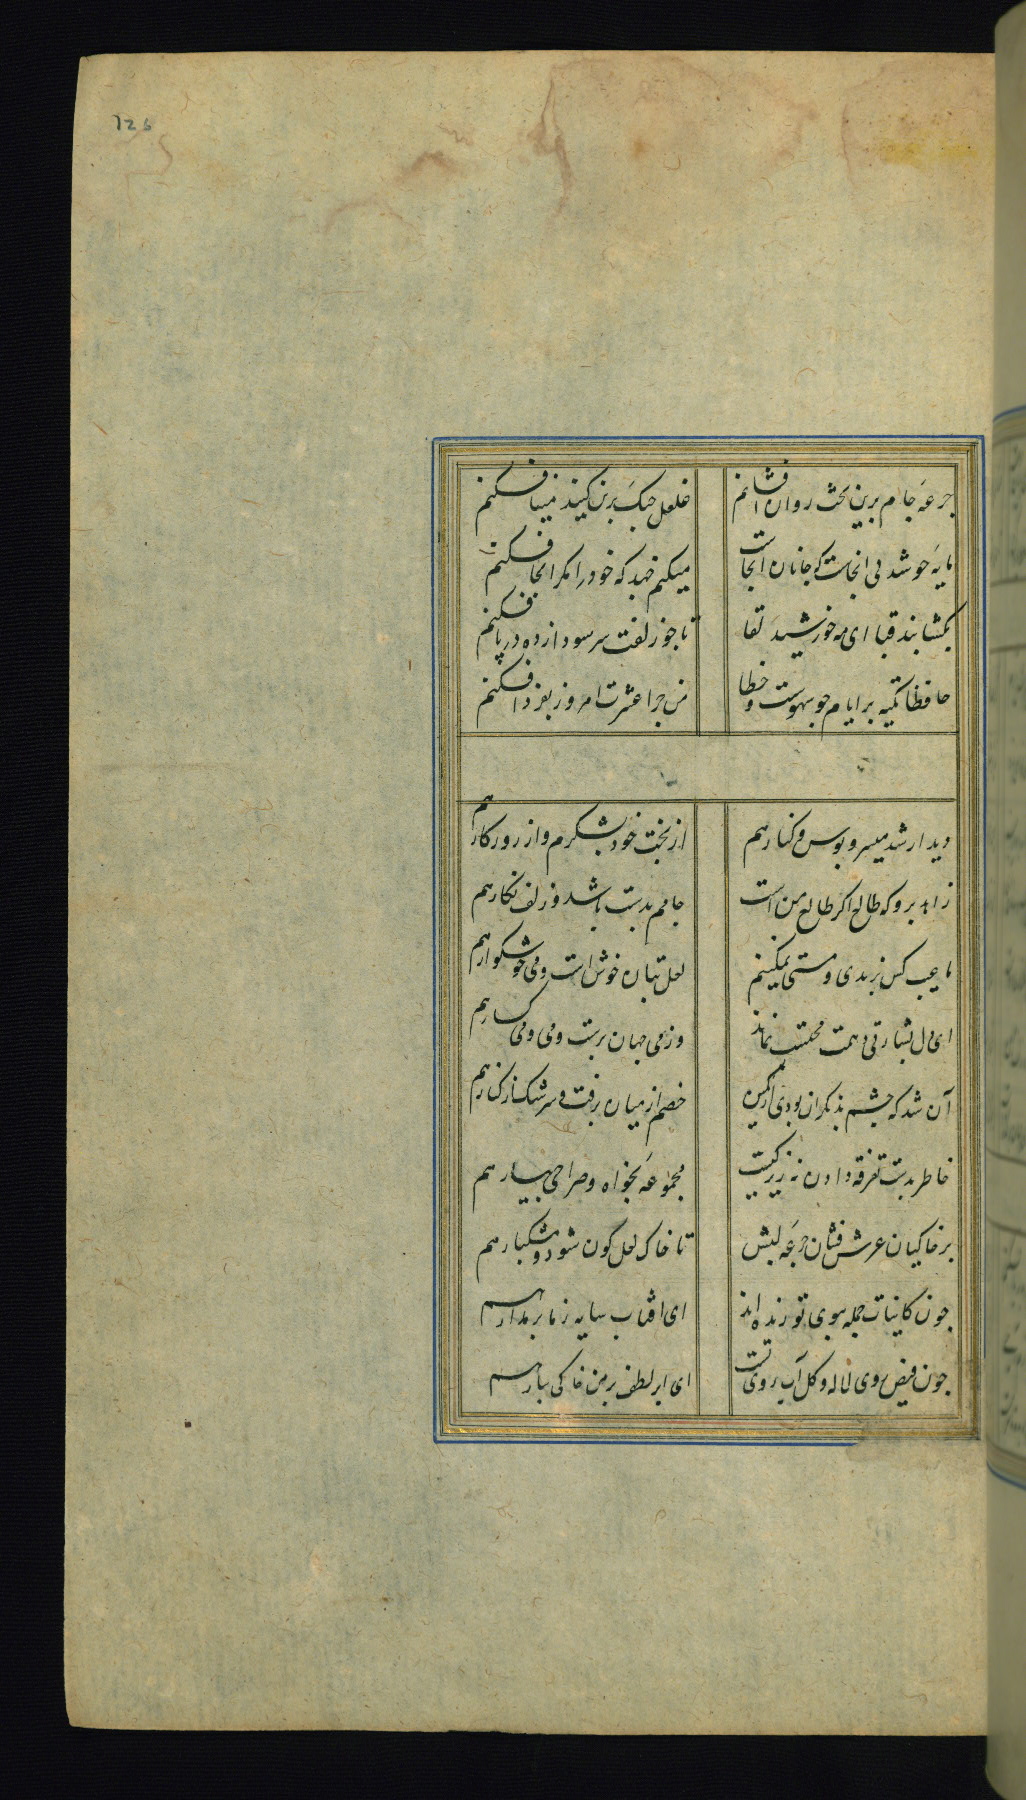 126
جرعه جام برین تخت روان افشانم
غلغل چنک برین کنبد مینا فکنم
مایه خوشدلی انجاست که جانان انجاست
میکنم جهد که خود را مکر انجا فکنم
بکشا بند قبا ای مه خورشید لقا
تا جو زلفت سر سودازده در پا فکنم
حافظا تکیه بر ایام جو سهوست و خطا
من جرا عشرت امروز بفردا فکنم
دیدار شد میسر و بوس و کنار هم
از بخت خود بشکرم و از روزکار هم
زاهد برو که طالع اکر طالع من است
جامم بدست باشد و زلف نکار هم
ما عیب کس برندی و مستی نمیکنیم
لعل بتان خوش است و می خوشکوار هم
ای دل بشارتی دهمت محتسب نماند
وز می جهان پرست و می کسار هم
آن شد که چشم بد نکران بودی از کمین
خصم از میان برفت و سرشک از کنار هم
خاطر بدست تفرقه دادن نه زیرکیست
مجموعه بخواه و صراحی بیار هم
بر خاکیان عرش فشان جرعه لبش
تا خاک لعل کون شود و مشکبار هم
جون کاینات جمله ببوی تو زنده اند
ای افتاب سایه ز ما بر مدار هم
جون فیض روی لاله و کل آب روی تست
ای ابر لطف بر من خاکی ببار هم